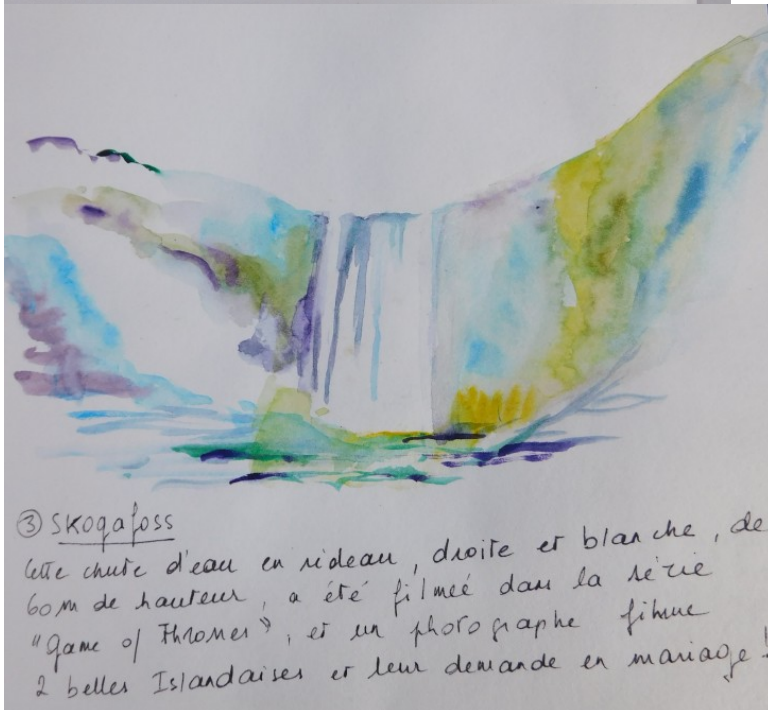 ③ Skogafoss
Cette chute d'eau en rideau, droite et blanche, de
60 m de hauteur, a été filmée dans la série
"Game of Thrones", et un photographe filme
2 belles Islandaises et leur demande en mariage !